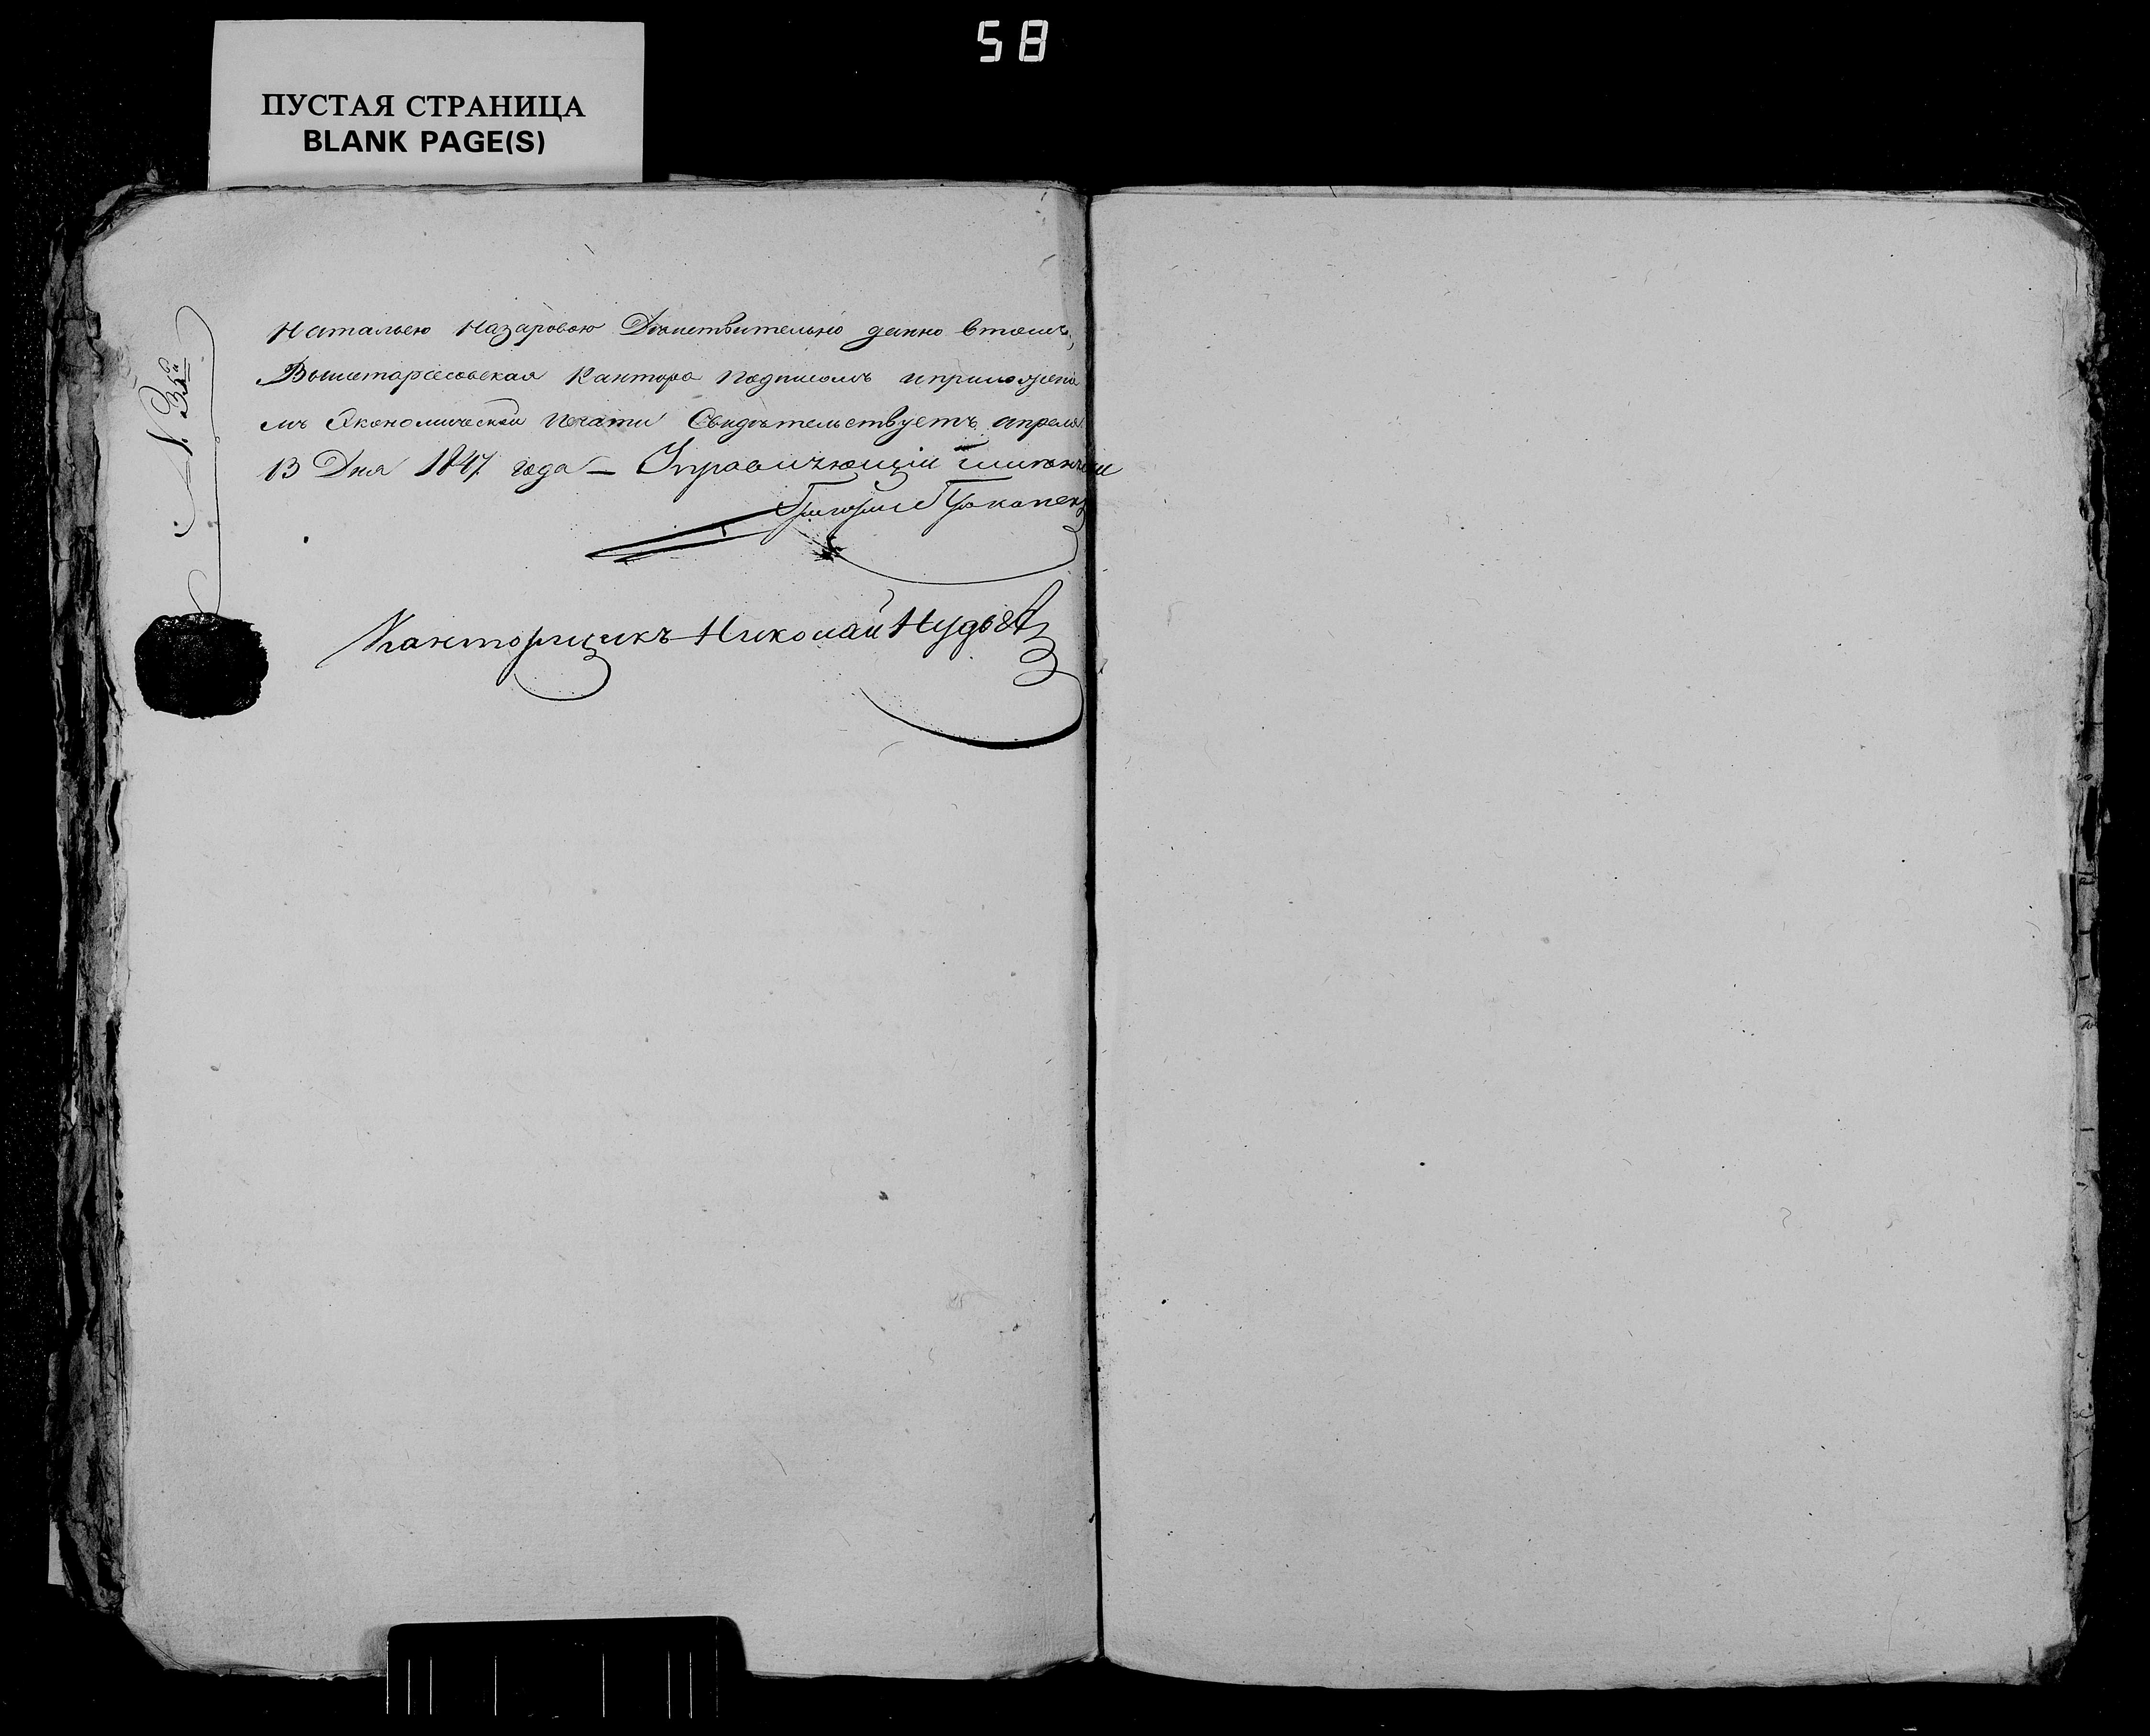 58
ПУСТАЯ СТРАНИЦА
BLANK PAGE(S)
N. 35й
Натальею Назаровою Дѣиствительно данно втомъ,
Кантора подписомъ иприложени
мъ Экономической печати Свидѣтельствуетъ апреля
13 Дня 1847 года – Управляющій
Григорий
Канторщикъ Николай Нудьга